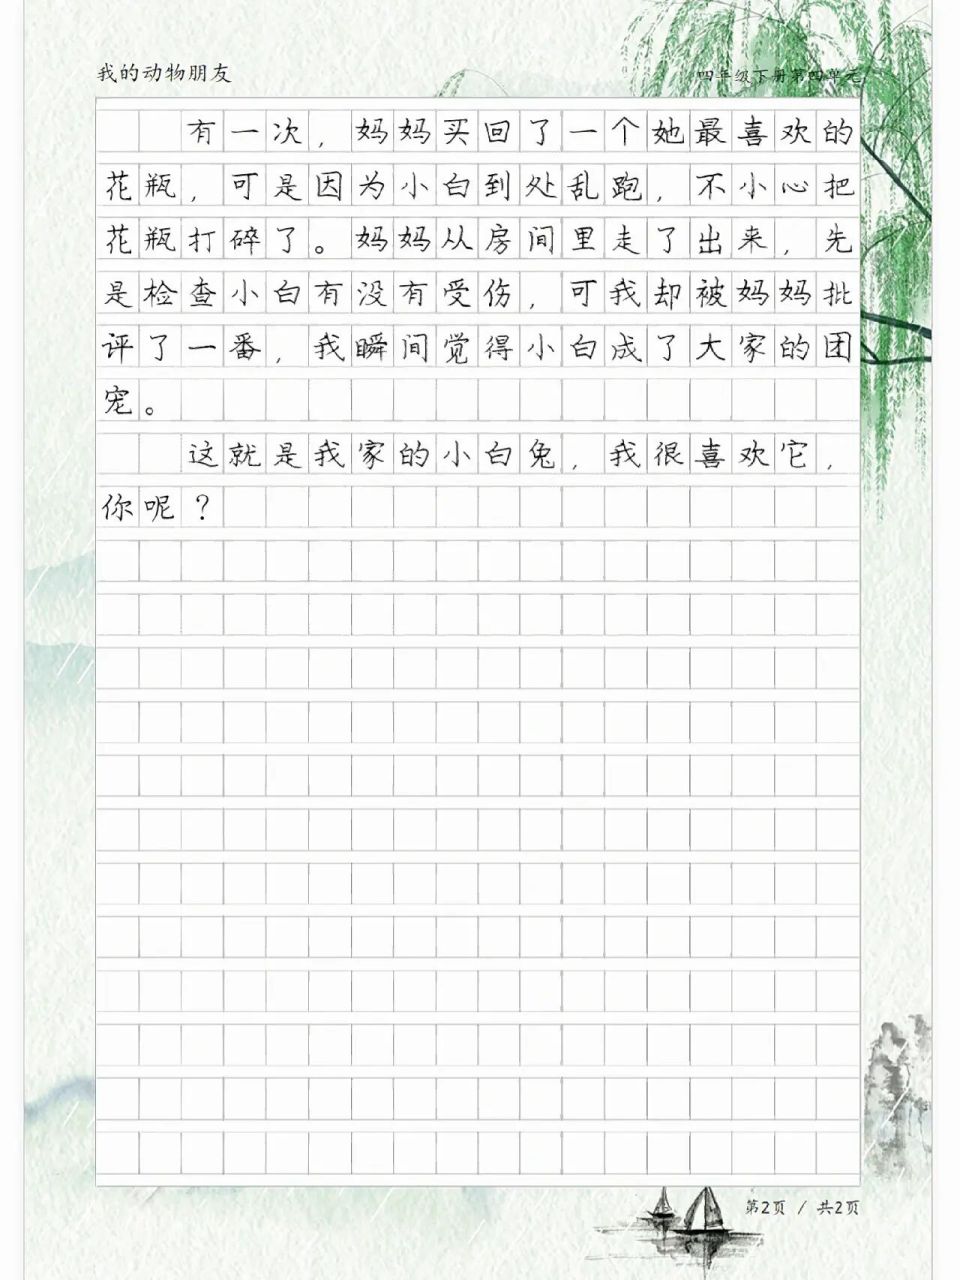 我的动物朋友
四年级下册第四单元
有一次，妈妈买回了一个她最喜欢的
花瓶，可是因为小白到处乱跑，不小心把
花瓶打碎了。妈妈从房间里走了出来，先
是检查小白有没有受伤，可我却被妈妈批
评了一番，我瞬间觉得小白成了大家的团
宠。
这就是我家的小白兔，我很喜欢它，
你呢？
第2页 / 共2页